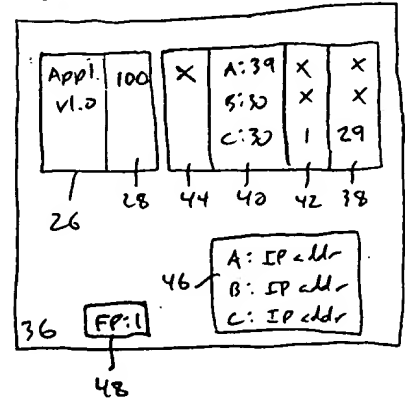 Appl. 100 X A:39 X X
v1.0 B:30 X X
C:30 1 29
26 28 44 40 42 38
46 A: IP addr
B: IP addr
C: IP addr
36 FP:1
48